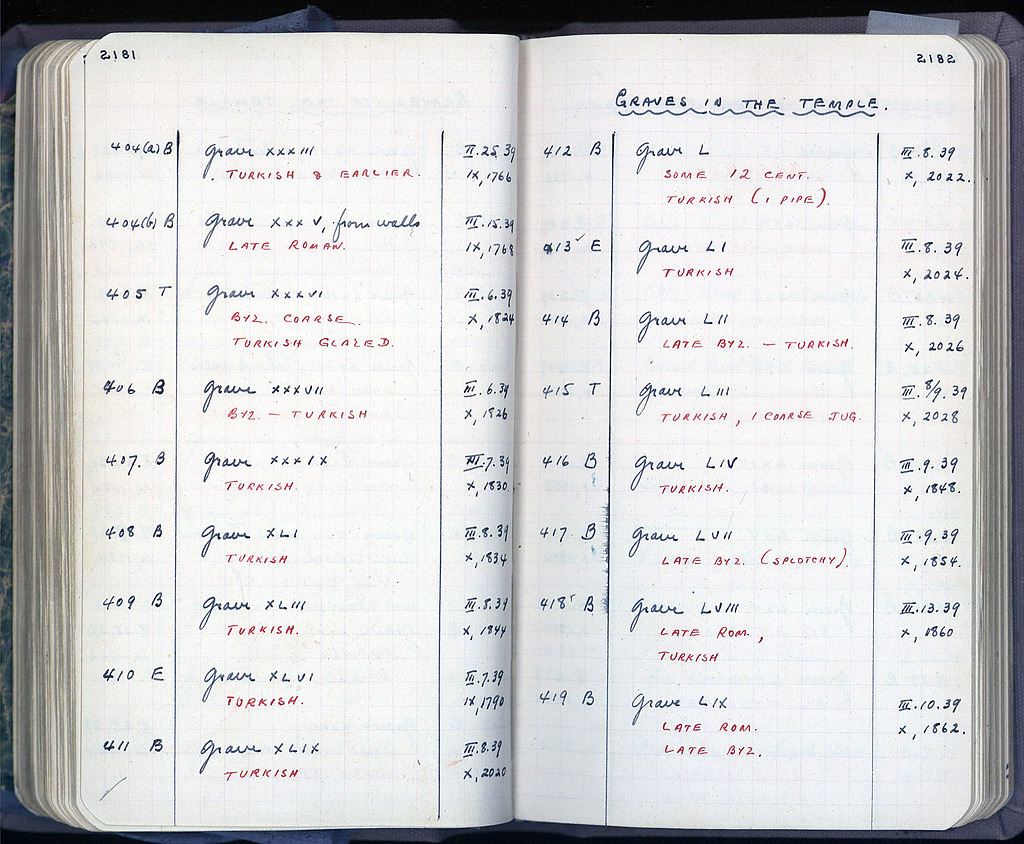 2181
404(a) B Grave XXXIII II.25.39
TURKISH & EARLIER. IX, 1766
404(b) B Grave XXXV, from walls III.15.39
LATE ROMAN. IX, 1768
405 T Grave XXXVI III.6.39
BYZ. COARSE. X, 1824
TURKISH GLAZED.
406 B Grave XXXVII III.6.39
BYZ. – TURKISH X, 1826
407. B Grave XXXIX III.7.39
TURKISH. X, 1830
408 B Grave XLI III.8.39
TURKISH X, 1834
409 B Grave XLIII III.8.39
TURKISH. X, 1844
410 E Grave XLVI III.7.39
TURKISH. IX, 1790
411 B Grave XLIX III.8.39
TURKISH X, 2020
2182
GRAVES IN THE TEMPLE.
412 B Grave L III.8.39
SOME 12 CENT. X, 2022.
TURKISH (1 PIPE).
413 E Grave LI III.8.39
TURKISH X, 2024.
414 B Grave LII III.8.39
LATE BYZ. – TURKISH. X, 2026
415 T Grave LIII III.8/9.39
TURKISH, 1 COARSE JUG. X, 2028
416 B Grave LIV III.9.39
TURKISH. X, 1848.
417 B Grave LVII III.9.39
LATE BYZ. (SPLOTCHY). X, 1854.
418 B Grave LVIII III.13.39
LATE ROM., X, 1860
TURKISH
419 B Grave LIX III.10.39
LATE ROM. X, 1862.
LATE BYZ.